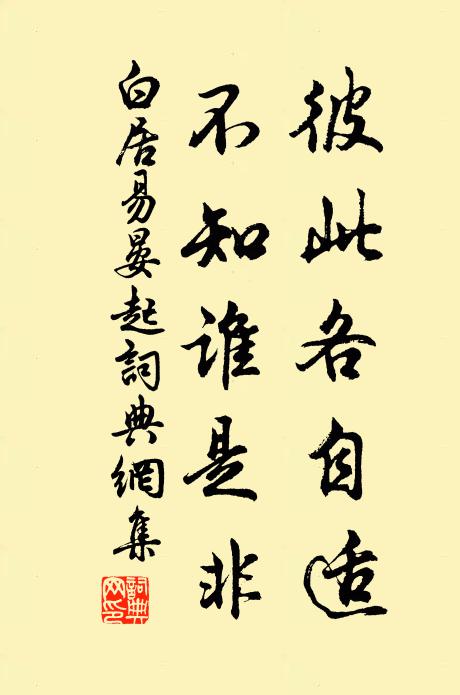 彼此各自适
不知谁是非
白居易晏起詞典網集
詞典网印